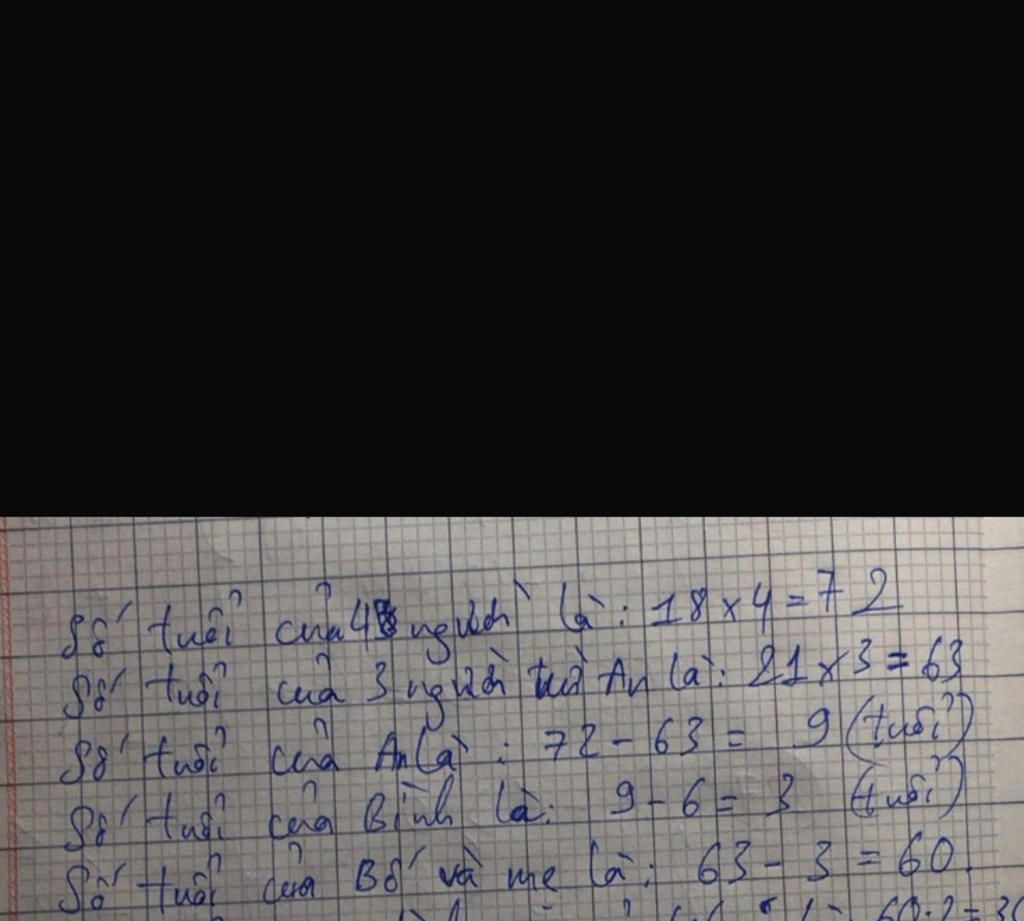 Số tuổi của 4 người là: 18 x 4 = 72
Số tuổi của 3 người trừ An là: 21 x 3 = 63
Số tuổi của An là: 72 - 63 = 9 (tuổi)
Số tuổi của Bình là: 9 - 6 = 3 (tuổi)
Số tuổi của Bố và mẹ là: 63 - 3 = 60
60:2=30